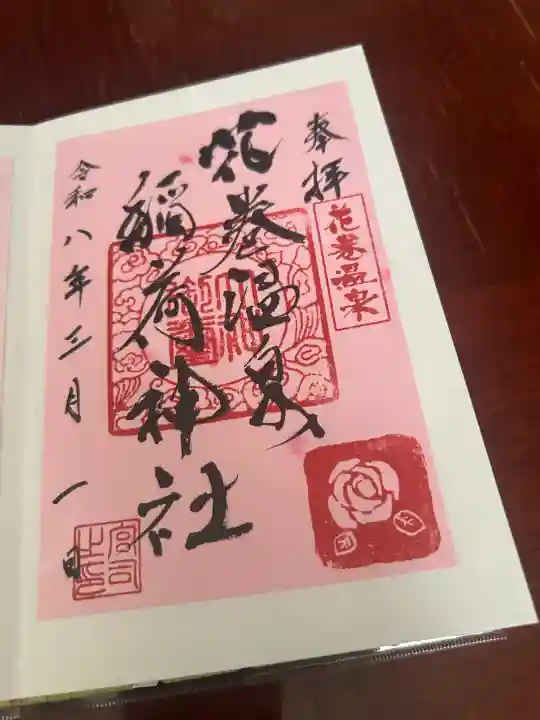 奉拝
花巻温泉
花巻温泉
稲荷神社
令和八年三月一日